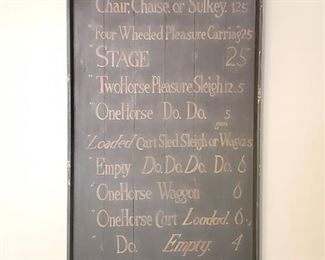 Chair, Chaise, or Sulkey. 12.5
"Four Wheeled Pleasure Carriag 25
"STAGE 25
"Two Horse Pleasure Sleigh 12.5
"One Horse Do. Do. 5
"Loaded" Cart Sled Sleigh or Wag 12.5
"Empy Do. Do. Do. Do 6
"One Horse Waggon 6
"One Horse Cart Loaded. 6.
" Do. Empty. 4